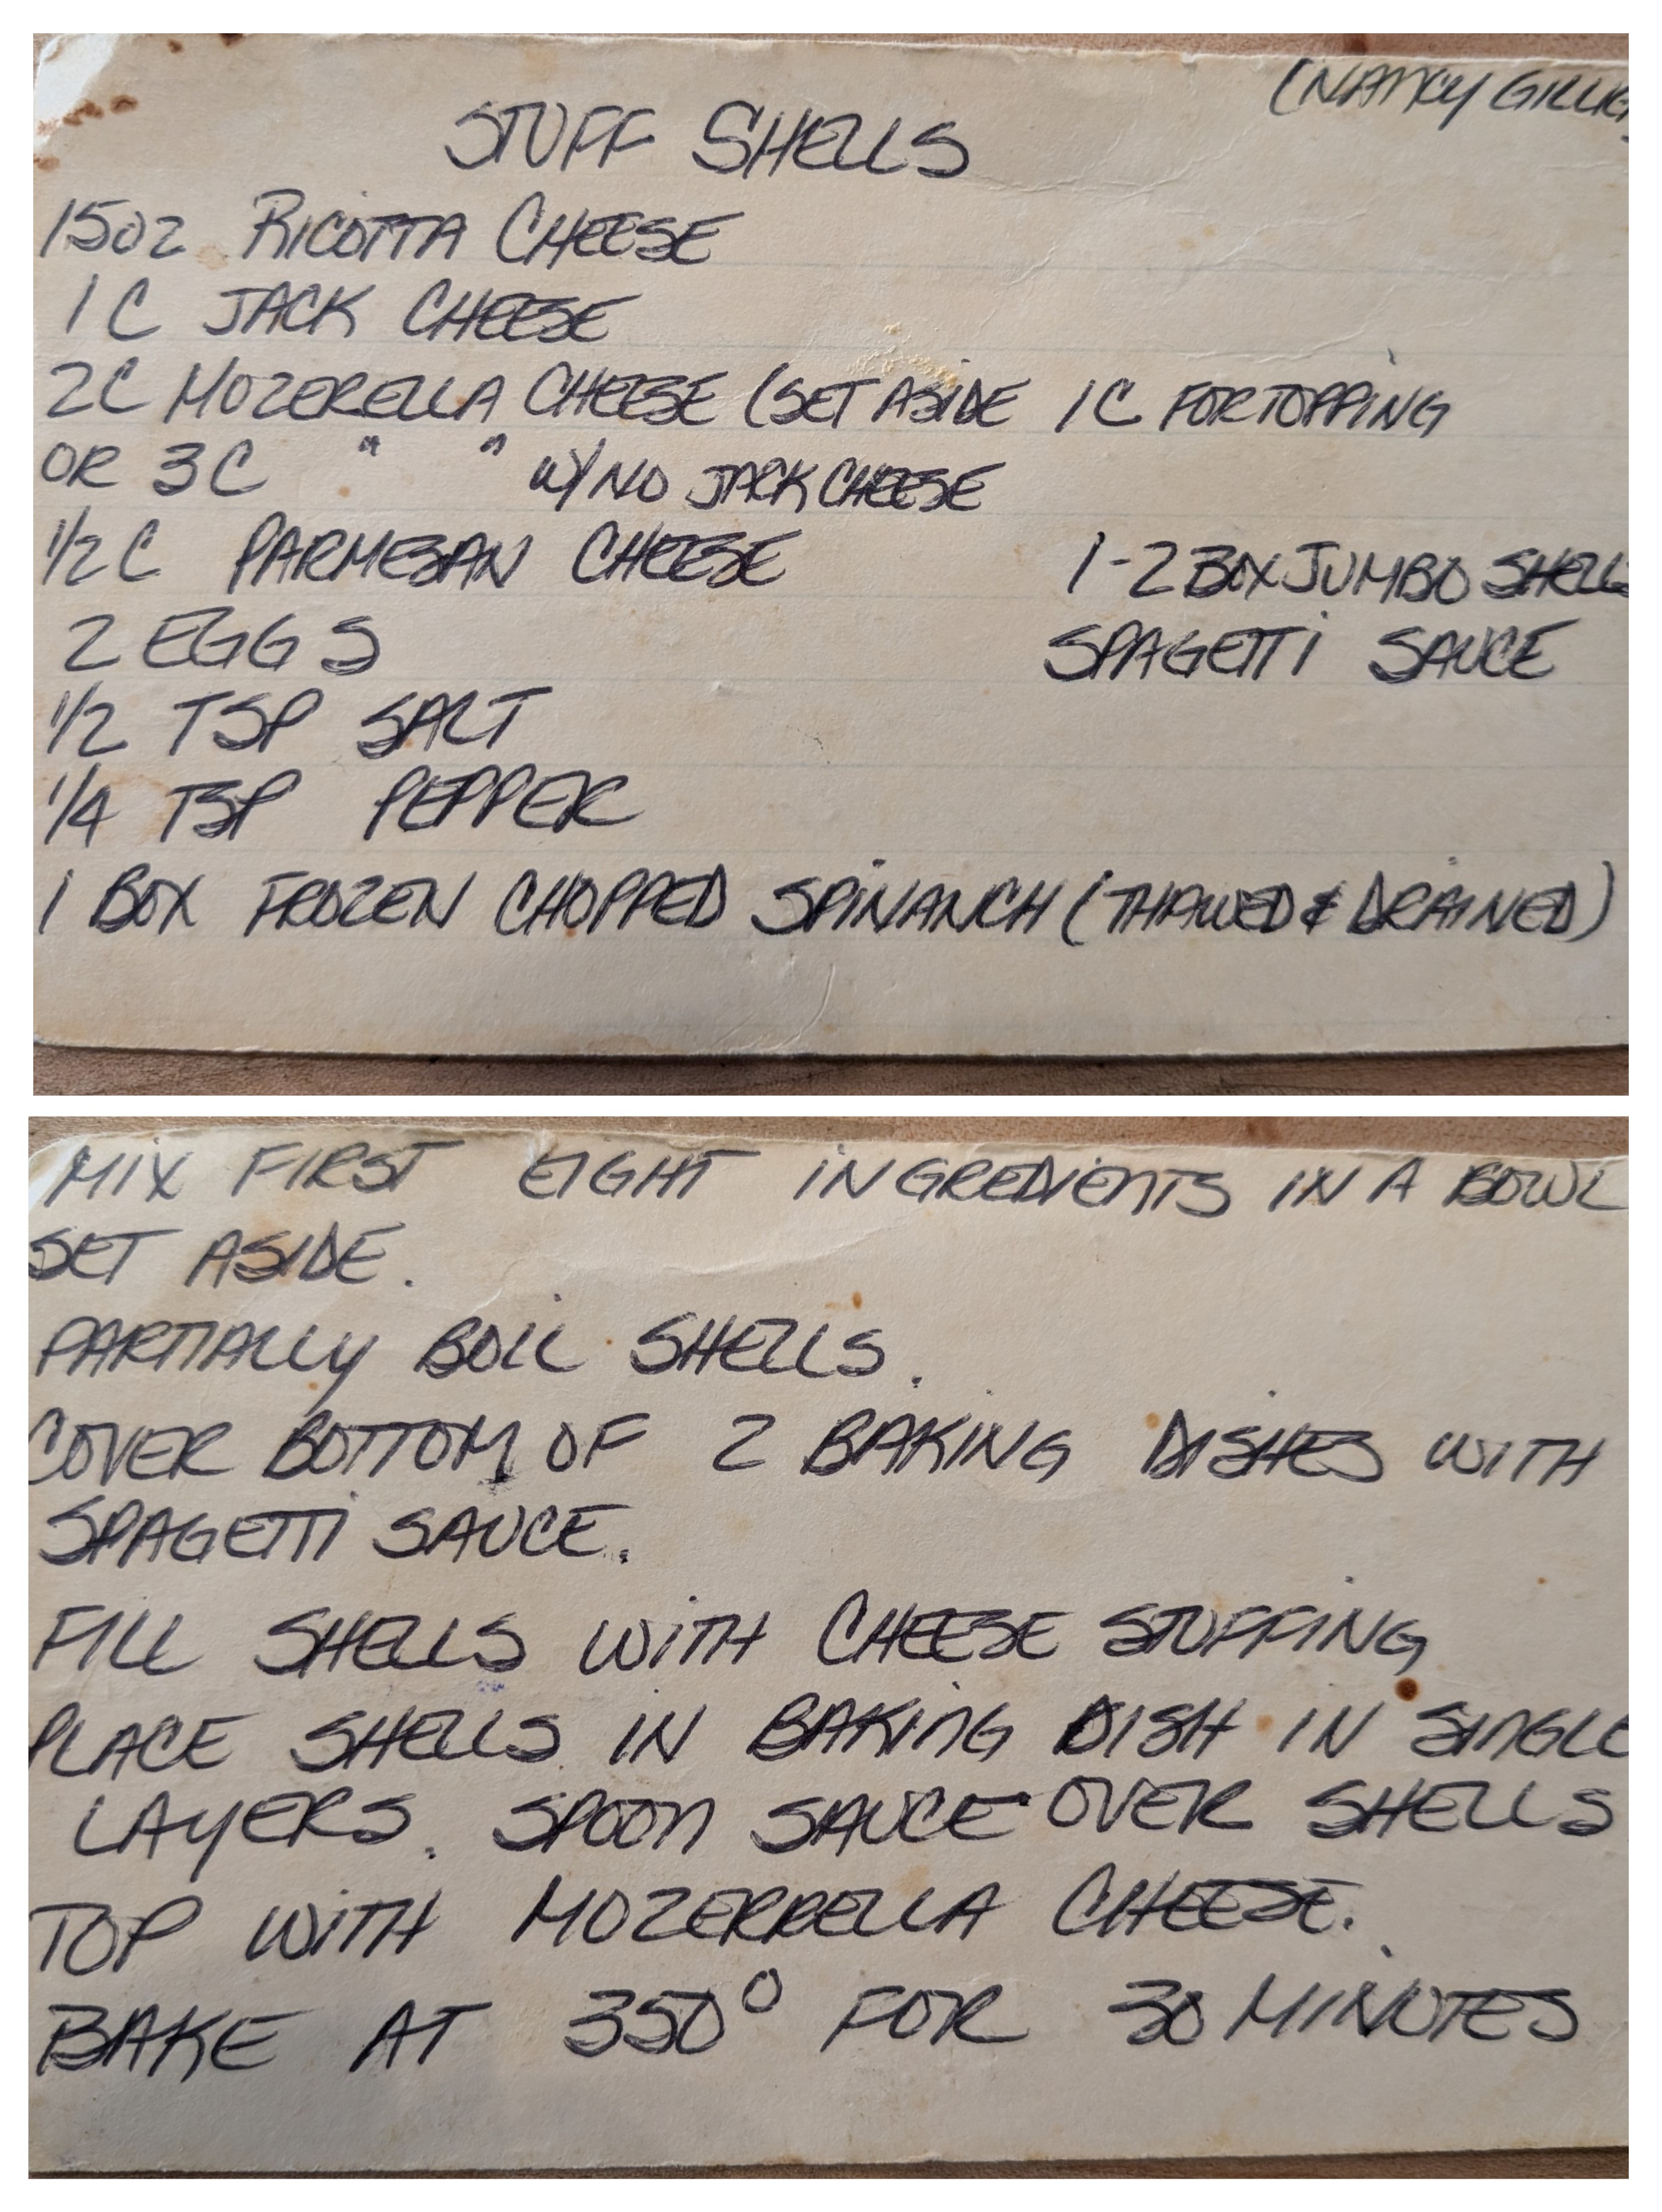 (NANCY
STUFF SHELLS
15oz RICOTTA CHEESE
1 C JACK CHEESE
2C MOZERELLA CHEESE (SET ASIDE 1C FOR TOPPING
OR 3C " " W/NO JACK CHEESE
1/2 C PARMESAN CHEESE
1-2 BOX JUMBO SHELLS
2 EGGS
SPAGETTI SAUCE
1/2 TSP SALT
1/4 TSP PEPPER
1 BOX FROZEN CHOPPED SPINANCH (THAWED & DRAINED)
MIX FIRST EIGHT INGREDIENTS IN A BOWL
SET ASIDE.
PARTIALLY BOIL SHELLS.
COVER BOTTOM OF 2 BAKING DISHES WITH
SPAGETTI SAUCE.
FILL SHELLS WITH CHEESE STUFFING
PLACE SHELLS IN BAKING DISH IN SINGLE
LAYERS. SPOON SAUCE OVER SHELLS
TOP WITH MOZERRELLA CHEESE.
BAKE AT 350° FOR 30 MINUTES